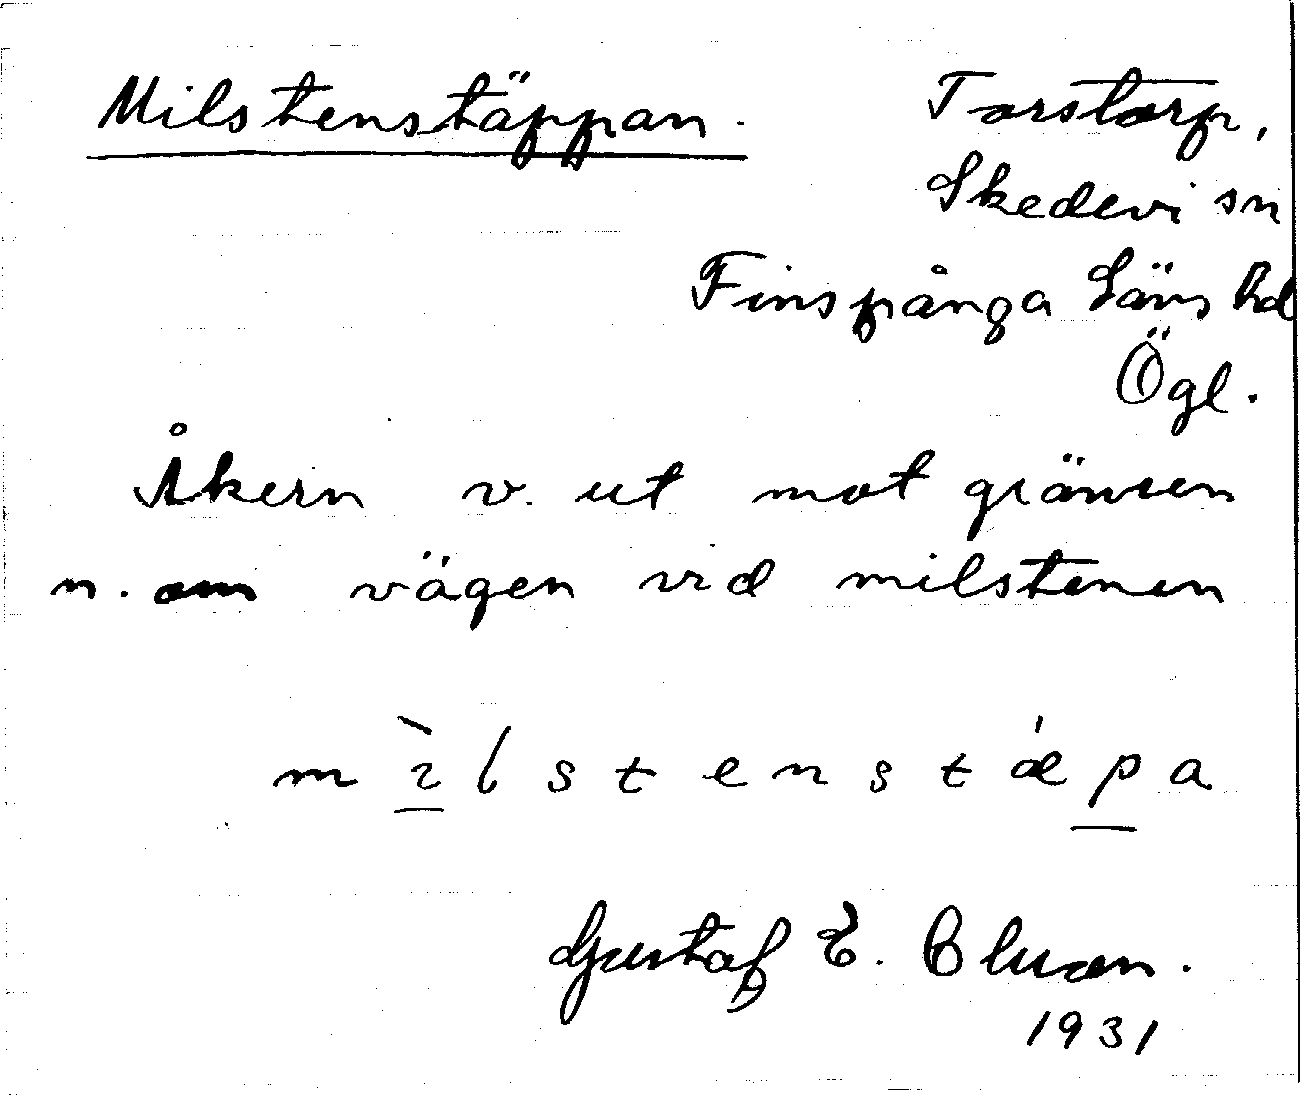 Milstenstäppan.
Torstorp,
Skedevi sn
Finspånga Läns hd
Ögl.
Åkern v. ut mot gränsen
n. om vägen vid milstenen
m ı̀ l s t e n s t ǽ p a
Gustaf E.
1931